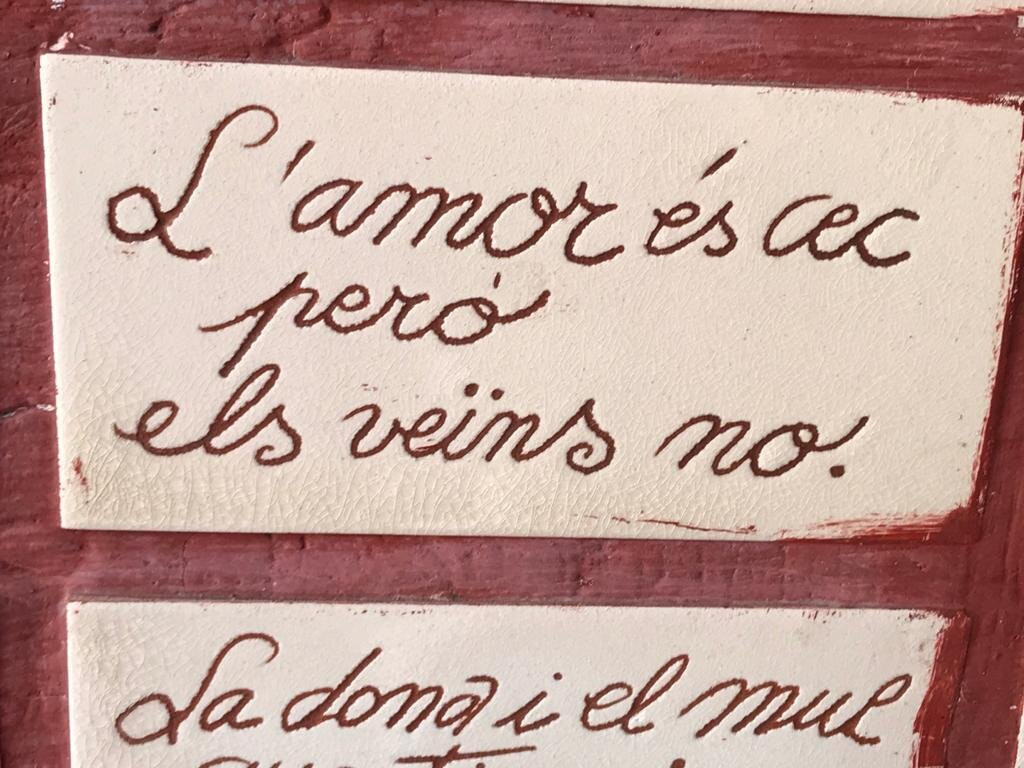 L'amor és cec
però
els veïns no.
La dona i el mul